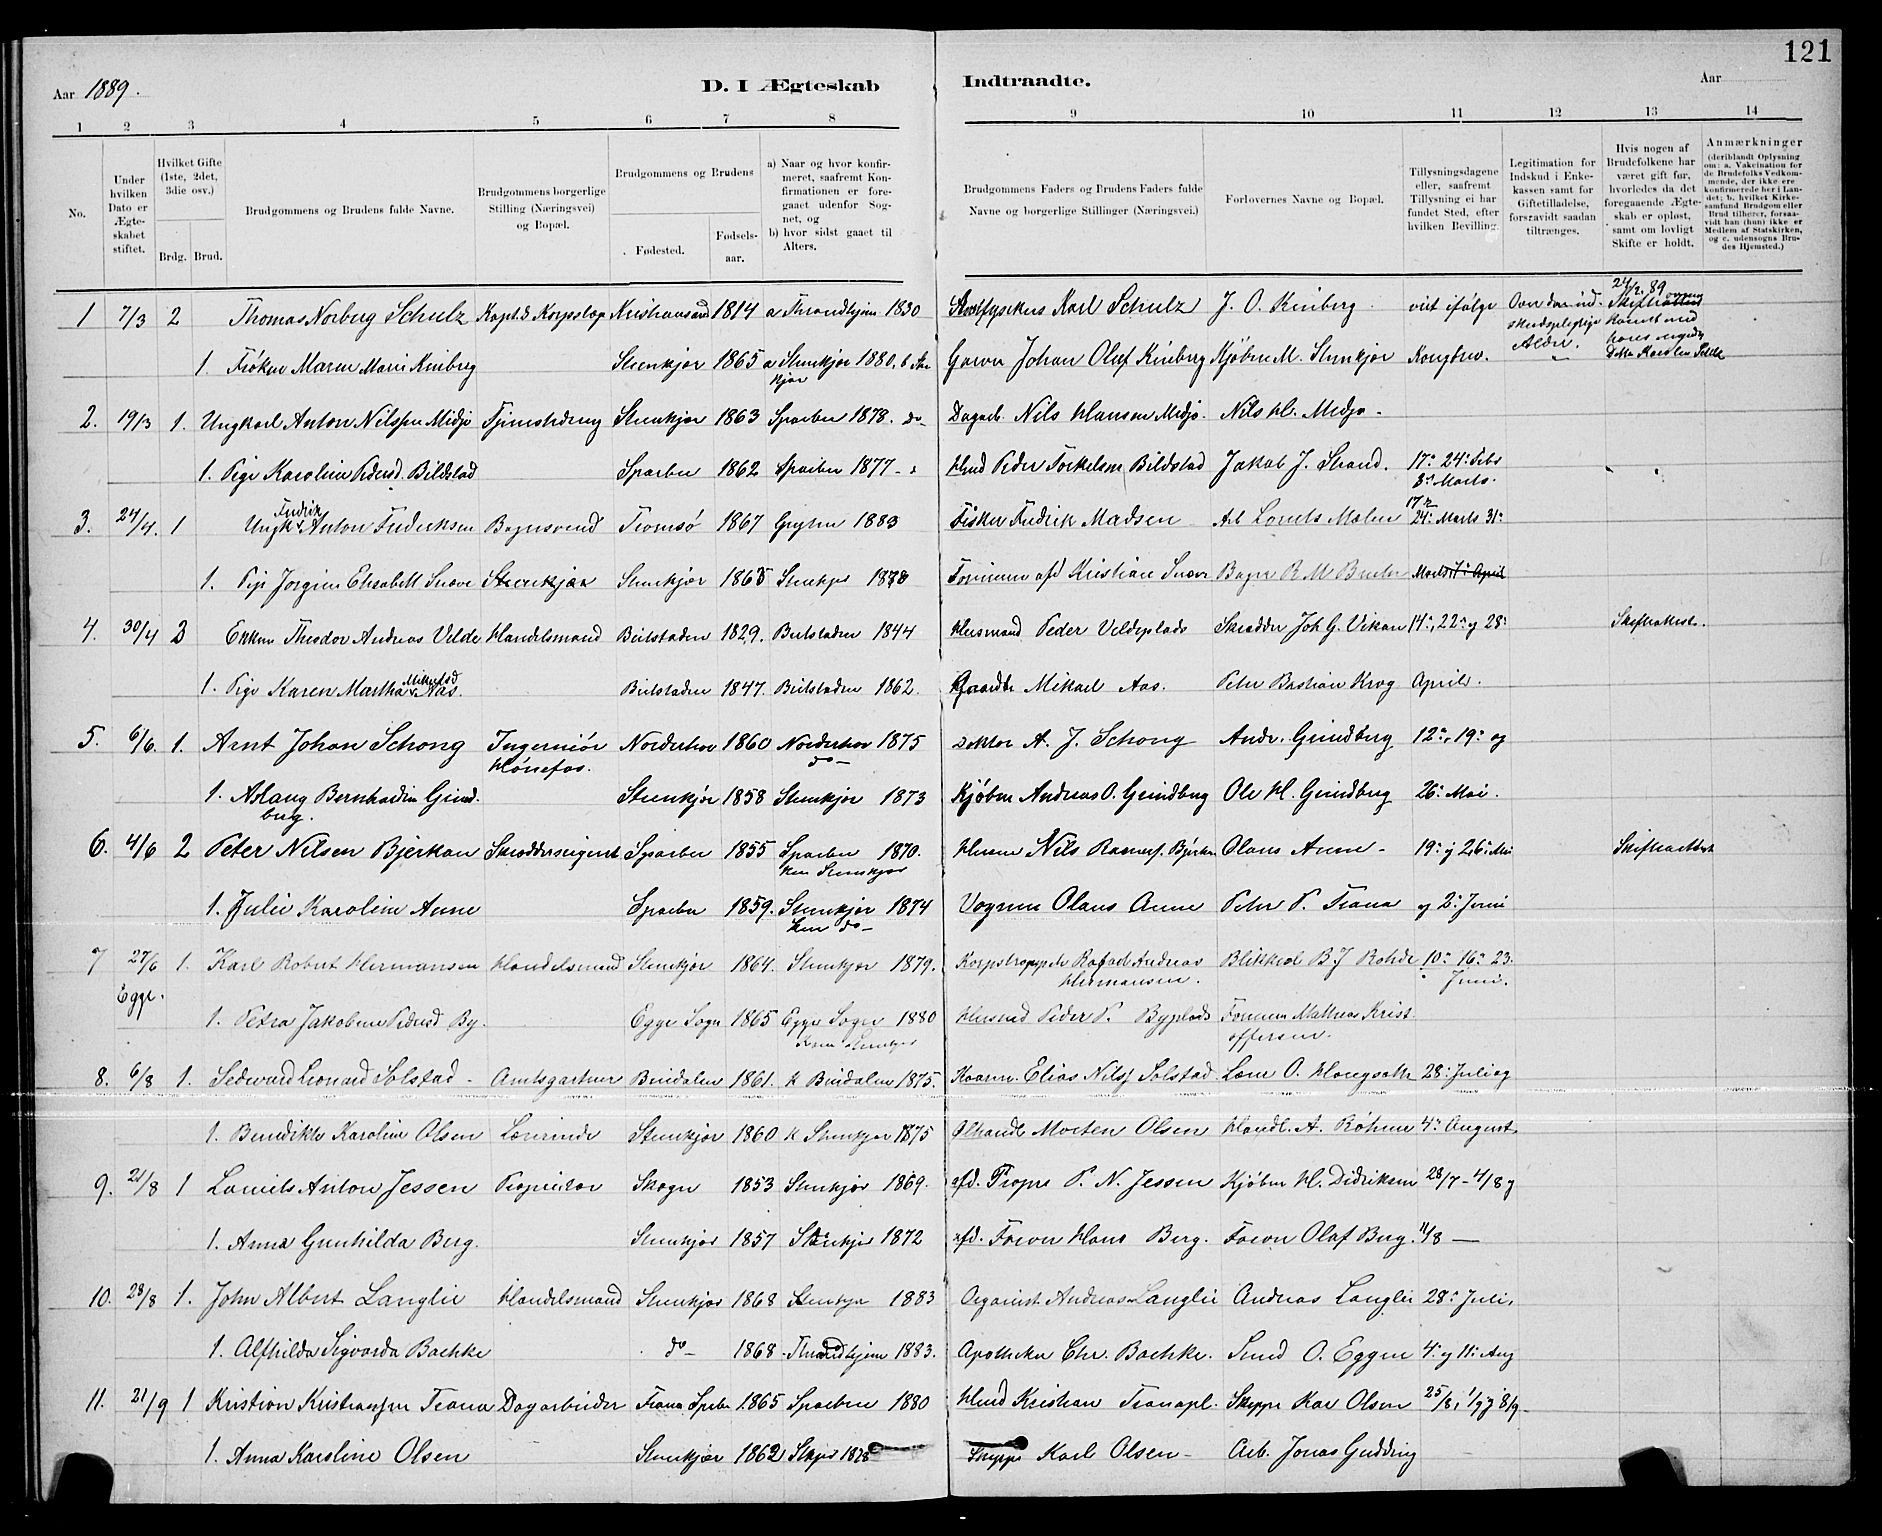 121
Aar 1889.
D. I Ægteskab Indtraadte.
Aar
1 2 3 4 5 6 7 8 9 10 11 12 13 14
No.
Under hvilken Dato er Ægteskabet stiftet.
Hvilket Gifte (1ste, 2det, 3die osv.)
Brdg. Brud.
Brudgommens og Brudens fulde Navne.
Brudgommens borgerlige Stilling (Næringsvei) og Bopæl.
Brudgommens og Brudens
Fødested.
Fødselsaar.
a) Naar og hvor konfirmeret, saafremt Konfirmationen er foregaaet udenfor Sognet, og
b) hvor sidst gaaet til Alters.
Brudgommens Faders og Brudens Faders fulde Navne og borgerlige Stillinger (Næringsvei.)
Forlovernes Navne og Bopæl.
Tillysningsdagene eller, saafremt Tillysning ei har fundet Sted, efter hvilken Bevilling.
Legitimation for Indskud i Enkekassen samt for Giftetilladelse, forsaavidt saadan tiltrænges.
Hvis nogen af Brudefolkene har været gift før, hvorledes da det foregaaende Ægteskab er opløst, samt om lovligt Skifte er holdt.
Anmærkninger
(deriblandt Oplysning om: a. Vakcination for de Brudefolks Vedkommende, der ikke ere konfirmerede her i Landet; b. hvilket Kirkesamfund Brudgom eller Brud tilhører, forsaavidt han (hun) ikke er Medlem af Statskirken, og c. udensogns Brudes Hjemsted.)
1 7/3 2 Thomas Norberg Schulz Kapt. & Korpslæge Kristiansand 1814 a Throndhjem 1830 Karl Schulz J. O. Kinberg vist ifølge
1. Frøken Maren Marie Kinberg Stenkjær 1865 a Stenkjær 1880. Garver Johan Olaf Kinberg Kjøbm. M. Stenkjær Kongebrev.
2. 19/3 1. Ungkarl Anton Nilssen Midjo Tjenestedreng Stenkjær 1863 Sparbu 1878. do Dagarb. Nils Hansen Midjo. Nils H. Midjo.
1. Pige Karoline Pedersd. Bildstad Sparbu 1862 Sparbu 1877 Husmd Peder Torkelsen Bildstad Jakob J. Strand. 17. 24. Febr 3. Marts.
3. 24/4. 1 Ungk. Fredrik Anton Fredriksen Bagersvend Tromsø 1867 Grytten 1883 Fisker Fredrik Madsen Arb. Lorents Mælen 17. 24. Marts 31.
1. Pige Jorgine Elisabeth Snæve Stenkjær Stenkjær 1865 Stenkjær 1880 Formann afd Kristian Snæve Bager R M Marts 7. April
4. 30/4 2 Enkem. Theodor Andreas Velde Handelsmand Beitstaden 1829. Beitstaden 1844 Husmand Peder Veldeplads Skrædder Joh G. Vikan 14., 22. og 28. Skifteattest.
1. Pige Karen Martha Mikelsd Aas. Beitstaden 1847. Beitstaden 1862. Gaardbr Mikael Aas. Peter Bastian Krog April.
5. 6/6. 1. Arnt Johan Schong Ingeniør Hønefos. Norderhov 1860 Norderhov 1875 do Doktor A. J. Schong Andr. Grindberg 12., 19. og
1. Aslaug Bernhardine Grindberg. Stenkjær 1858 Stenkjær 1873 Kjøbm Andreas O. Grindberg Ole H. Grindberg 26. Mai.
6. 4/6 2 Peter Nilsen Bjerkan Skræddersvend Sparbu 1855 Sparbu 1870. Stenkjær Nils Bjerkan Olaus Anne 19. & 26. Mai Skifteattest
1. Julie Karoline Anne Sparbu 1859. Stenkjær 1874 do Vognm Olaus Anne Peter P. Trana og 2. Juni
7 27/6 Egge. 1. Karl Robert Hermansen Handelsmand Stenkjær 1864. Stenkjær 1879. Rafael Andreas Hermansen. Blikksl B J Rohde 10. 16. 23. Juni.
1. Petra Jakobine Pedersd By. Egge Sogn 1865 Egge Sogn 1880 Stenkjær Husmd Peder P. Byplads Formann Mathias Kristoffersen.
8. 6/8 1. Sedvard Leonard Solstad Amtsgartner Bindalen 1861. k Bindalen 1875. Elias Nilss Solstad Lærer O. Haugsæth 28. Juli og
1. Benedikte Karoline Olsen Lærerinde Stenkjær 1860 k Stenkjær 1875 Morten Olsen Handl. A. Røhme 4. August
9. 21/8 1 Laurits Anton Jessen Proprietær Skogn 1853 Stenkjær 1869. afd. Propr P. N. Jessen Kjøbm H. Didriksen 28/7 - 4/8 &
1. Anna Gunhilda Berg. Stenkjær 1857 Stenkjær 1872 afd. Farver Hans Berg. Farver Olaf Berg. 11/8
10. 28/8 1. John Albert Langlie Handelsmand Stenkjær 1868 Stenkjær 1883 Organist Andreas Langlie Andreas Langlie 28. Juli,
1. Alfhilda Sigvarda Bachke do 1868 Throndhjem 1883. Apotheker Chr. Bachke. Smed O. Eggen 4. & 11. Aug
11. 21/9 1 Kristian Kristiansen Trana Dagarbeider Trana Sparbu 1865 Sparbu 1880 Husmd Kristian Tranapl. Skipper Kar Olsen 25/8, 1/9 & 8/9
1. Anna Karoline Olsen Stenkjær 1862 Stkjær 1878 Skipper Karl Olsen Arb. Jonas Gudding